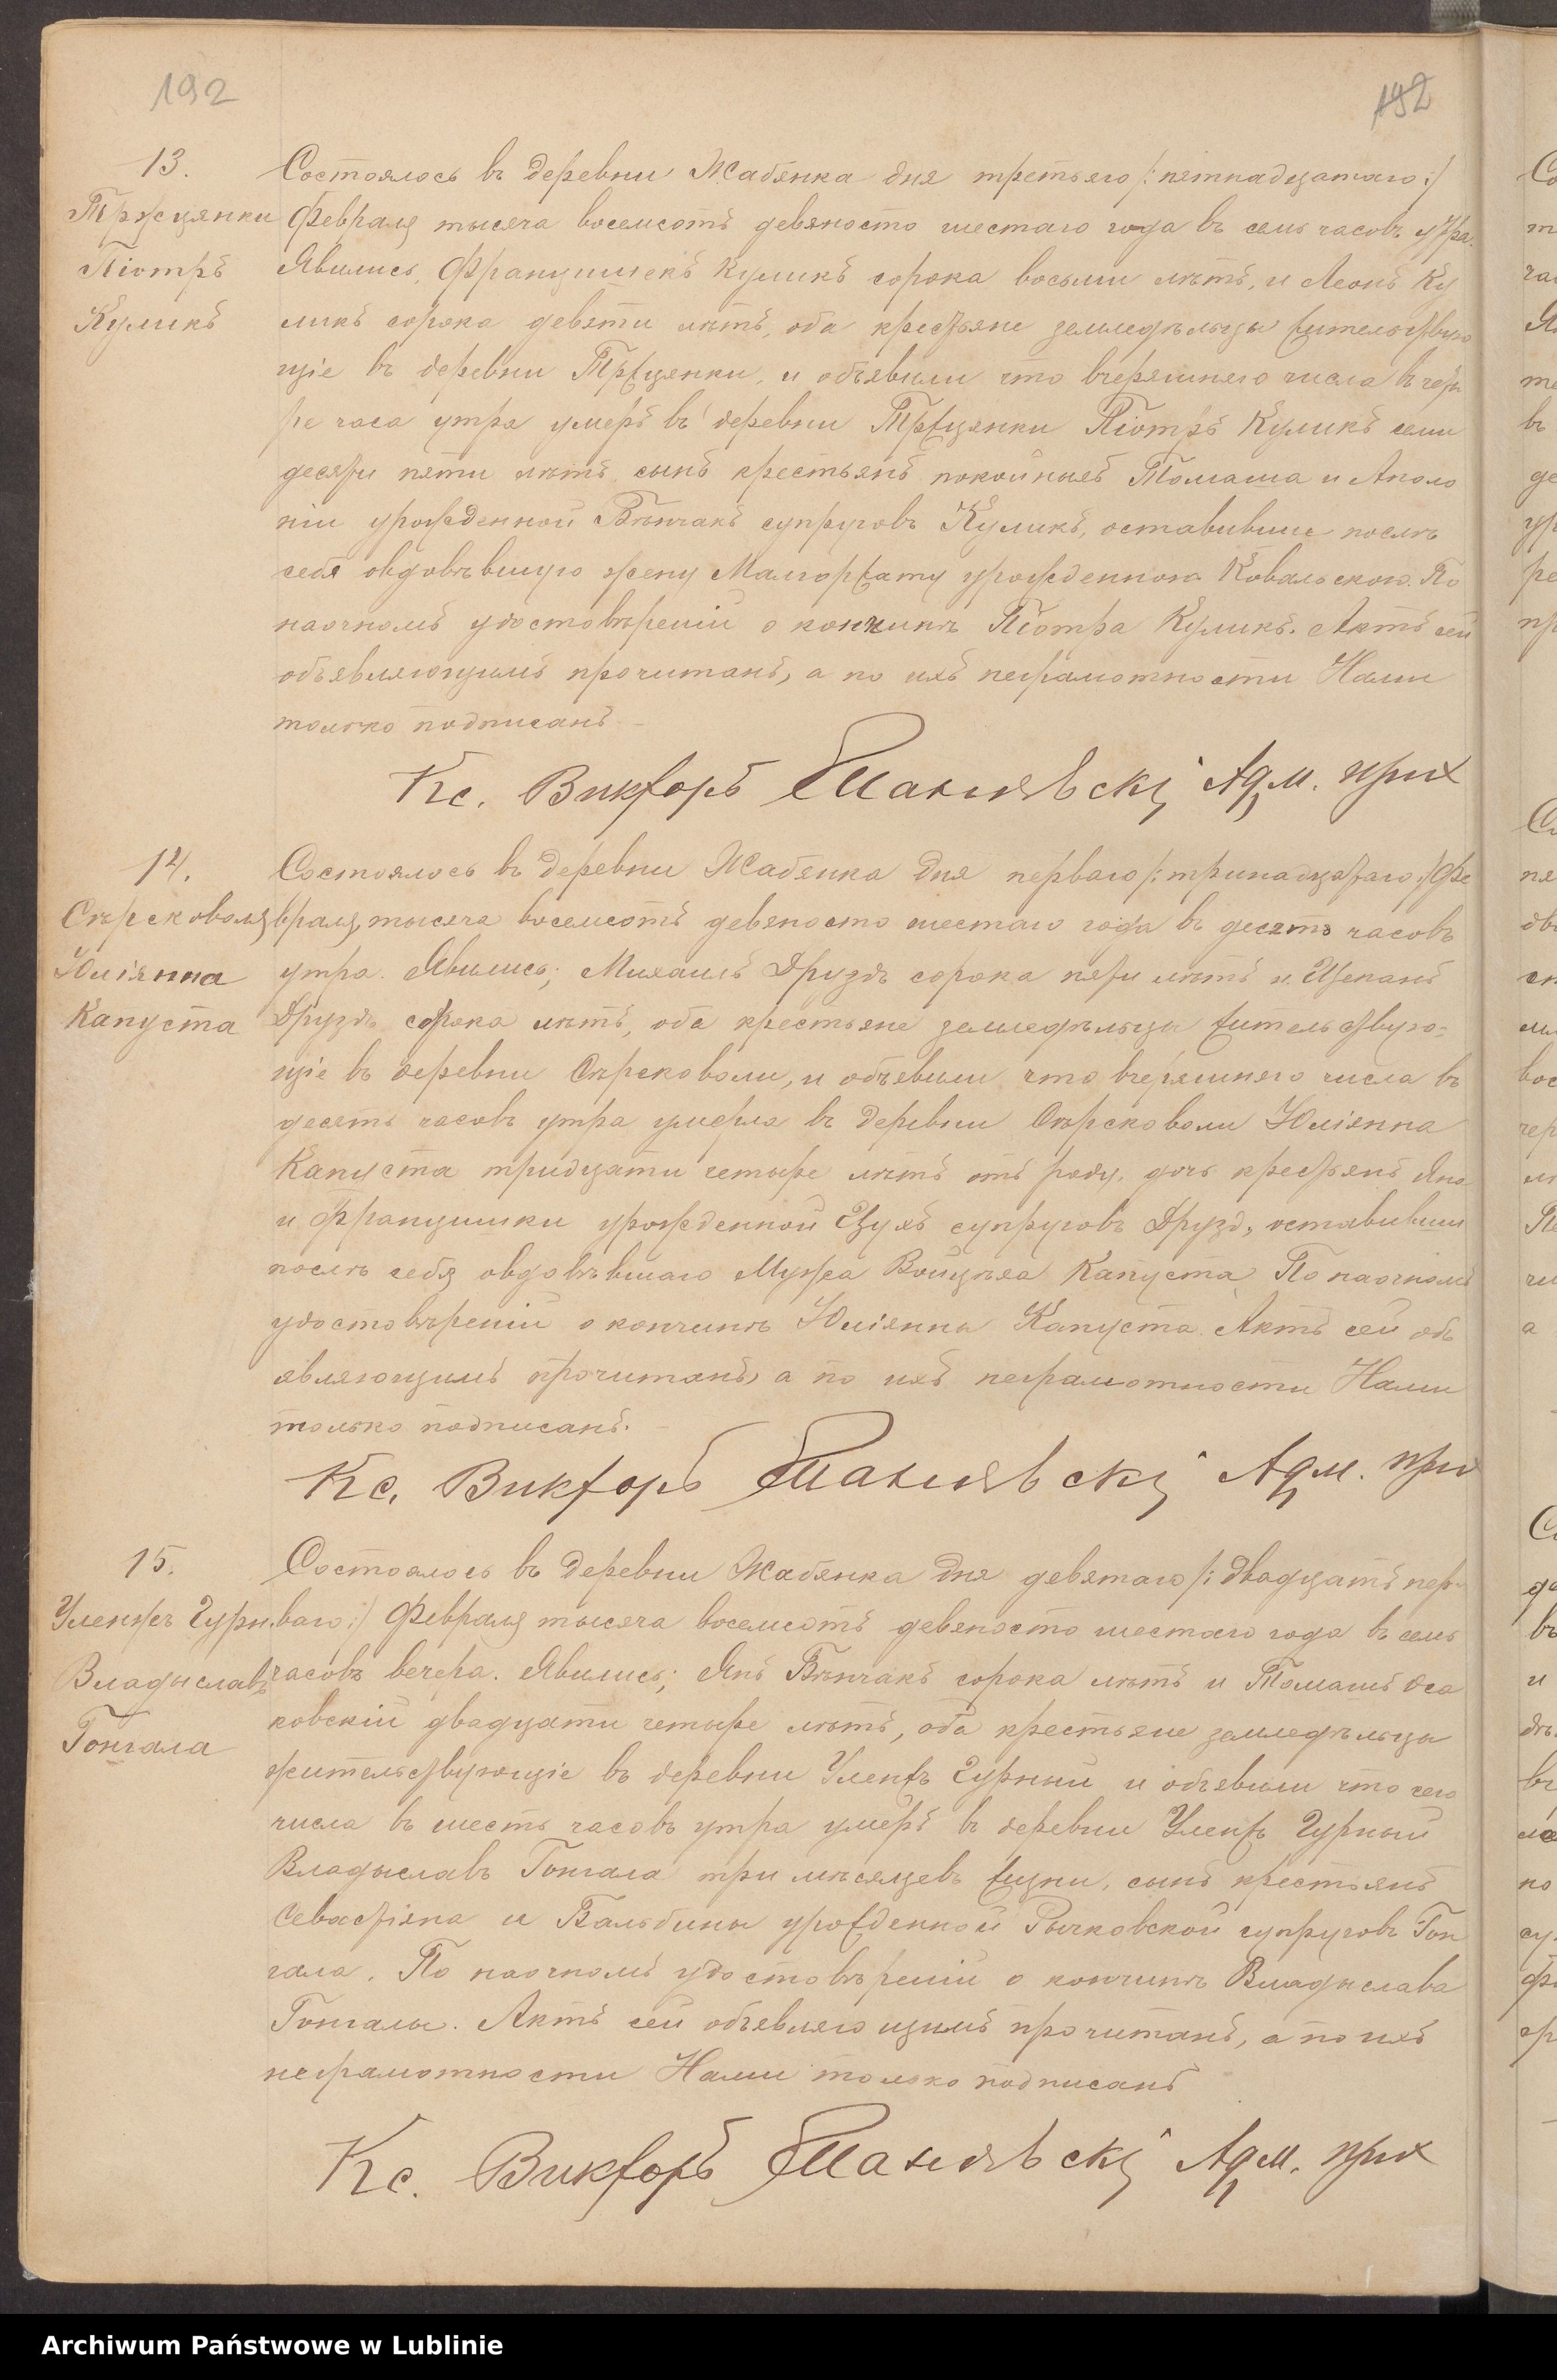 192
192
13.
Тржцянки
Піотръ
Куликъ
Состоялось въ деревни Жабянка дня третьяго /:пятнадцатаго:/
Февраля тысяча восемсотъ девяносто шестаго года въ семь часовъ утра.
Явились, Францишекъ Куликъ сорока восьми лѣтъ, и Леонъ Ку
ликъ сорока девяти лѣтъ, оба крестьяне земледѣльцы жительствую
щіе въ деревни Тржцянки, и объявили что вчерашняго числа въ четы
ре часа утра умеръ въ деревни Тржцянки Піотръ Куликъ семи
десяти пяти лѣтъ сынъ крестьянъ покойныхъ Томаша и Аполо
ніи урожденной Вѣнчакъ супруговъ Куликъ, оставивши послѣ
себя овдовѣвшую жену Малгоржату урожденною Ковальскою. По
наочномъ удостовѣреніи о кончинѣ Піотра Куликъ. Актъ сей
объявляющимъ прочитанъ, а по ихъ неграмотности Нами
только подписанъ
Кс. Викторъ Адм. прих
14.
Сѣрсковоля
Юліянна
Капуста
Состоялось въ деревни Жабянка дня перваго /:тринадцатаго:/ Фе
враля, тысяча восемсотъ девяносто шестаго года въ десять часовъ
утра. Явились; Михаилъ Друздъ сорока пяти лѣтъ и Щепанъ
Друздъ сорока лѣтъ, оба крестьяне земледѣльцы жительствую-
щіе въ деревни Сѣрсководи, и объявили что вчерашняго числа въ
десять часовъ утра умерла въ деревни Сѣрсководи Юліянна
Капуста тридцати четыре лѣтъ отъ роду, дочь крестьянъ Яна
и Францишки урожденной супруговъ Друзд, оставивши
послѣ себя овдовѣвшаго Мужа Войцѣха Капуста. По наочномъ
удостовѣреніи о кончинѣ Юліянны Капуста. Актъ сей объ
являющимъ прочитанъ, а по ихъ неграмотности Нами
только подписанъ.
Кс. Викторъ Адм. прих
15.
Уленжъ Гурн.
Владыславъ
Гонгала
Состоялось въ деревни Жабянка дня девятаго /:двадцать пер-
ваго:/ Февраля тысяча восемсотъ девяносто шестаго года въ семь
часовъ вечера. Явились; Янъ Вѣнчакъ сорока лѣтъ и Томашъ Оса
ковскій двадцати четыре лѣтъ, оба крестьяне земледѣльцы
жительствующіе въ деревни Уленжъ Гурный и объявили что сего
числа въ шесть часовъ утра умеръ въ деревни Уленжъ Гурный
Владыславъ Гонгала три мѣсяцевъ жизни, сынъ крестьянъ
Севастіяна и Бальбины урожденной Рычковской супруговъ Гон
гала. По наочномъ удостовѣреніи о кончинѣ Владыслава
Гонгалы. Актъ сей объявляющимъ прочитанъ, а по ихъ
неграмотности Нами только подписанъ
Кс. Викторъ Адм. прих
Archiwum Państwowe w Lublinie